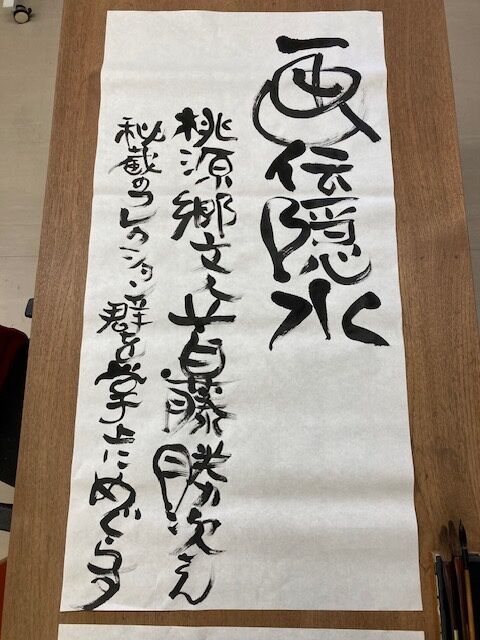 画伝隠水
桃源郷文人首藤勝次さん
秘蔵のコレクション群を掌上にめぐらす